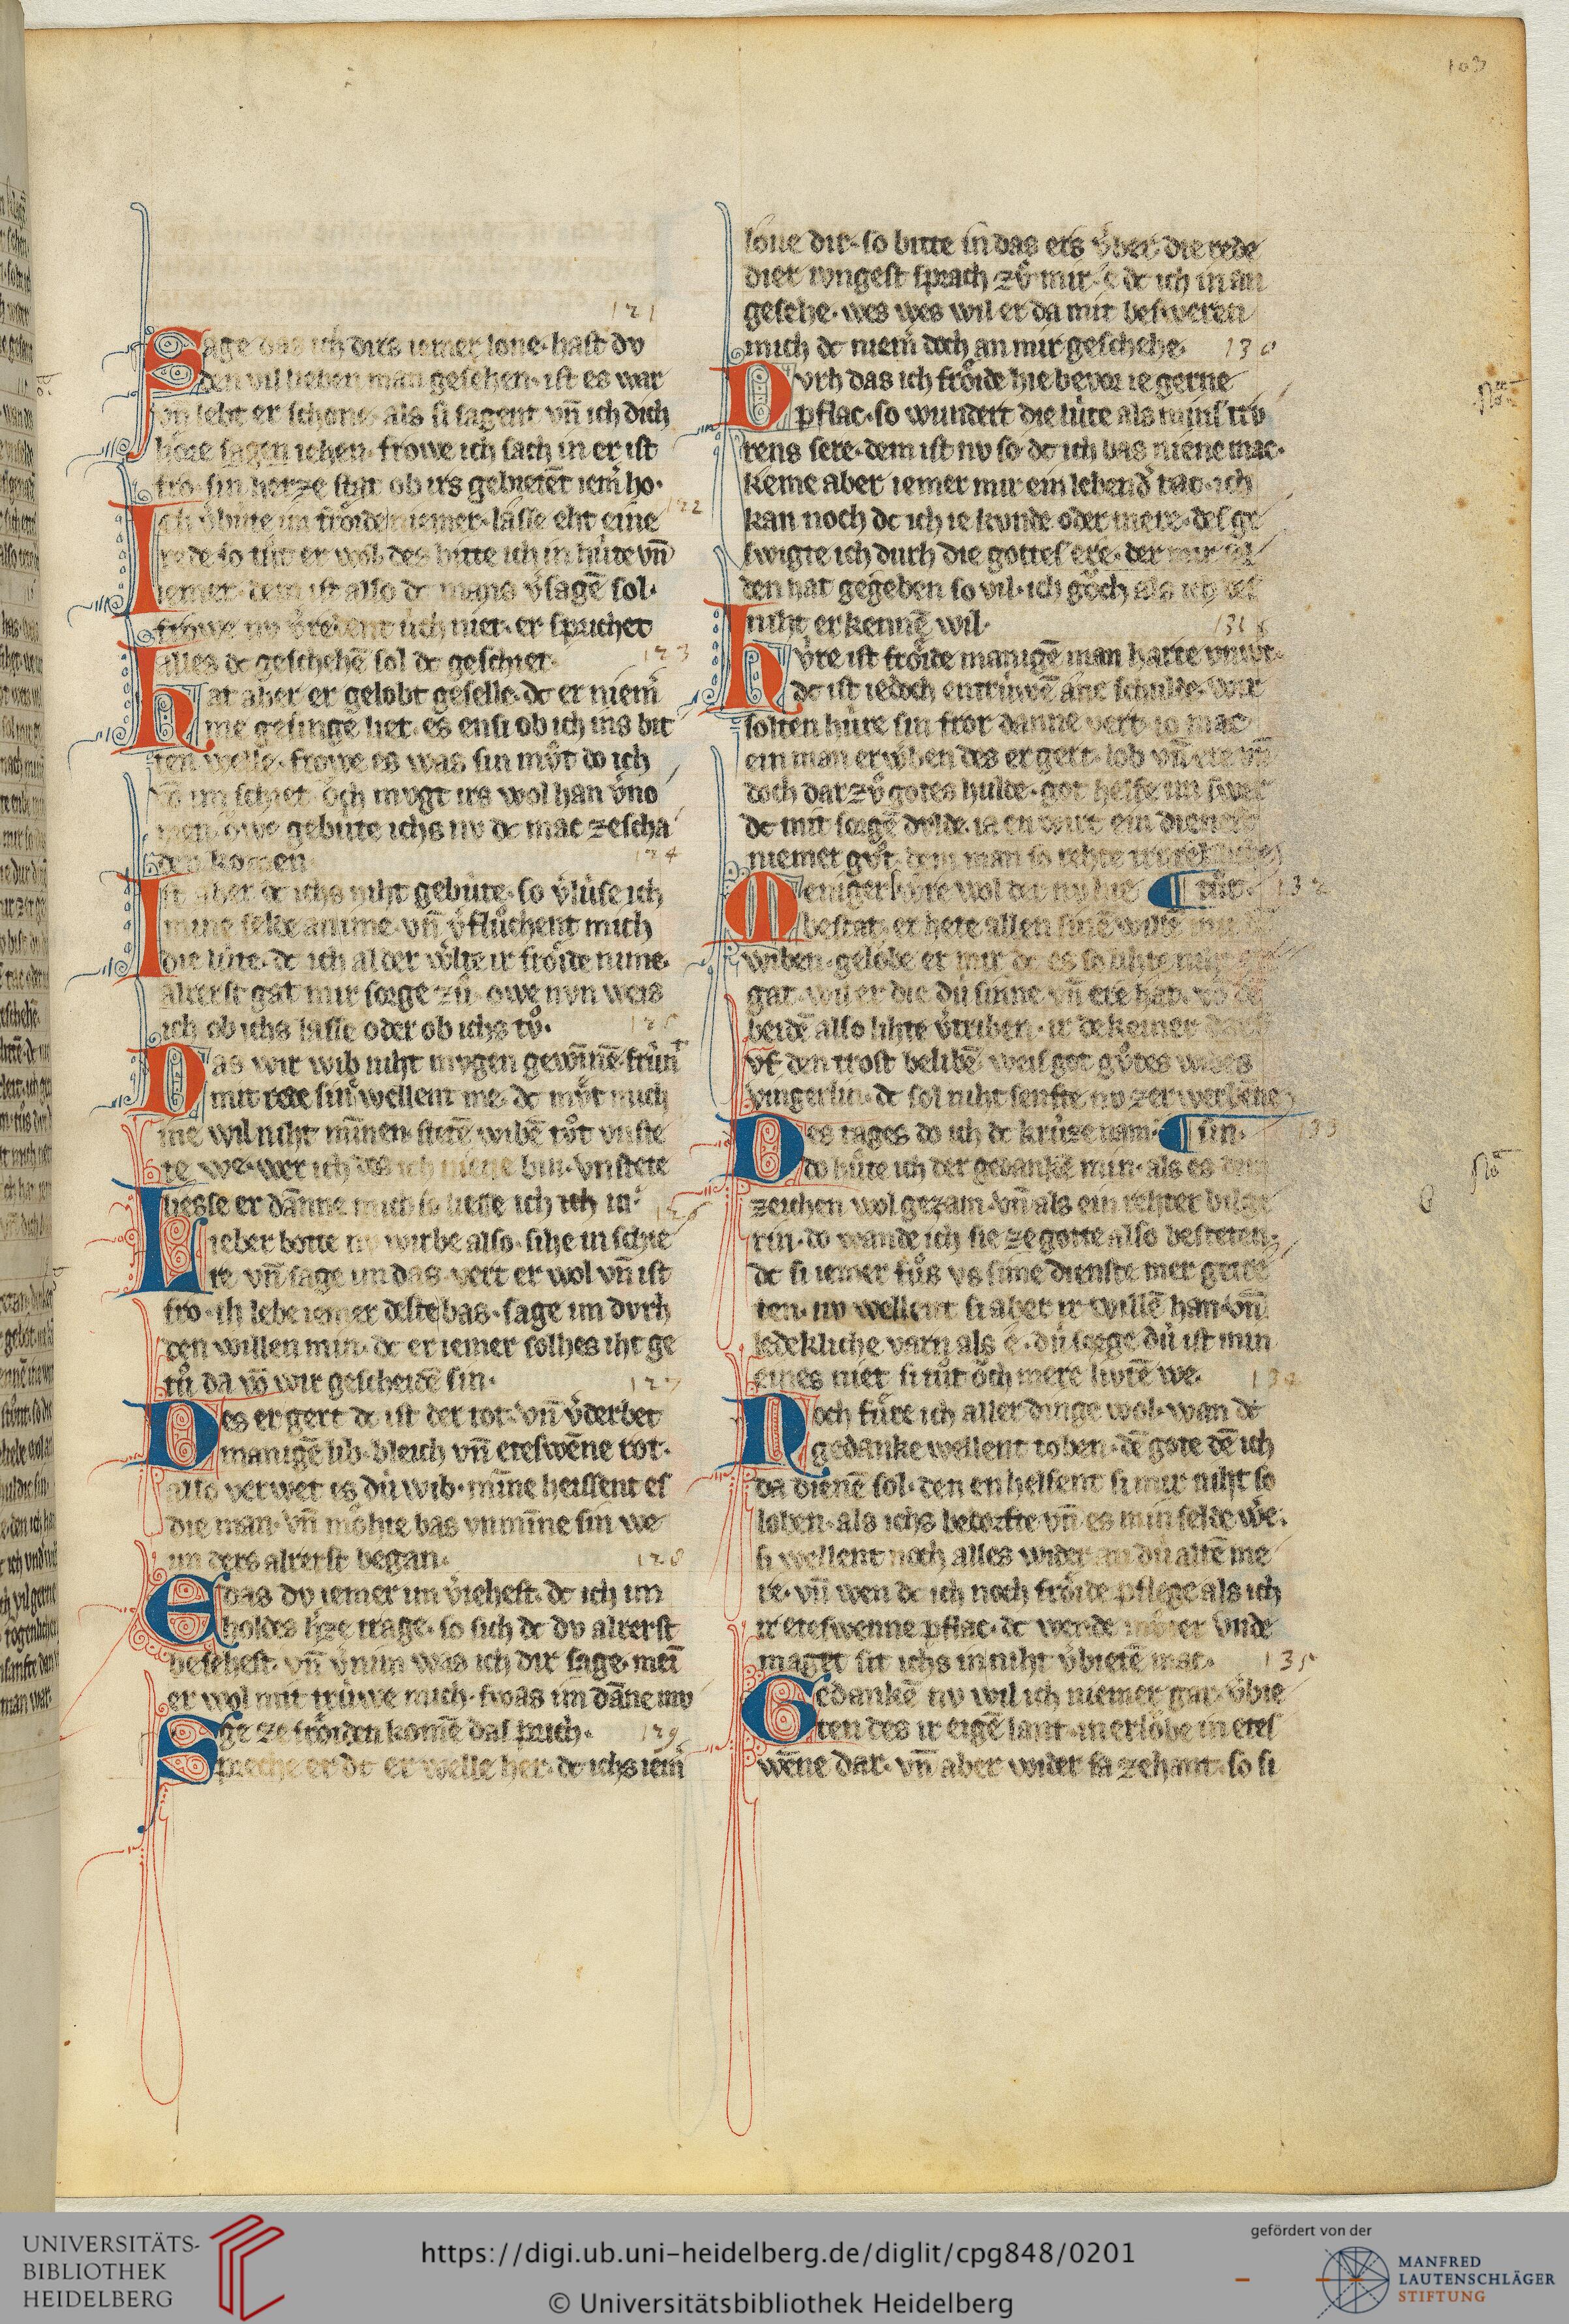 103
121
Sage das ich dirs iemer lone· hast dv
den vil lieben man gesehen· ist es war
vn̄ lebt er schone als si sagent vn̄ ich dich
hoͤre sagen iehen· frowe ich sach in er ist
fro· sin herze stat ob irs gebietēt iem̄ ho·
122
Ich v̓bute im froͤide niemer· lasse eht eine
rede so tuͦt er wol· des bitte ich in hute vn̄
iemer· dem ist also dc mans v̓sagē sol·
frowe nv v̓redent uch niet· er sprichet
alles dc geschehē sol dc geschiet·
123
Hat aber er gelobt geselle· dc er niem̄
me gesinge liet· es ensi ob ich ins bit
ten welle· frowe es was sin mvͦt do ich
vō im schiet· oͮch mvgt irs wol han v̓no
men· owe gebute ichs nv dc mac zescha
den komen
124
Ist aber dc ichs niht gebute· so v̓luse ich
mine selde an ime· vn̄ v̓fluͦchent mich
die lute· dc ich al der welte ir froͤide nime·
alrerst gat mir sorge zuͦ· owe nvn weis
ich ob ichs lasse oder ob ichs tvͦ·
125
Das wir wib niht mvgen gewinnē frunt
mit rede sin wellent me· dc mvͤt mich
ine wil niht minnen· stetē wibē tuͦt vnste
te we· wer ich des ich niene bin· vnstete
liesse er danne mich so liesse ich ich in·
126
Lieber botte nv wirbe also· sihe in schie
re vn̄ sage im das· vert er wol vn̄ ist
fro· ih lebe iemer deste bas· sage im dvrh
den willen min· dc er iemer solhes iht ge
tuͦ da vō wir gescheidē sin·
127
Des er gert dc ist der tot· vn̄ v̓derbet
manigē lib· bleich vn̄ eteswēne rot·
also verwet es du wib· minne heissent es
die man· vn̄ moͤhte bas vnminne sin we
im ders alrerst began·
128
E das dv iemer im v̓iehest· dc ich im
holdes h̓ze trage· so sich dc dv alrerst
besehest· vn̄ v̓nim was ich dir sage· meī
er wol mit truwe mich· swas im dāne mv
ge ze froͤiden komē das sprich·
129
Spreche er dc er welle her· dc ichs iem̄
lone dir· so bitte in das ers v̓ber die rede
dier ivngest sprach zvͦ mir· e dc ich in an
gesehe· wes wes wil er da mit besweren
mich dc niem̄ doch an mir geschehe·
130
Dvrh das ich froͤide hie bevor ie gerne
pflac· so wundert die lute als mins trv
rens sere· dem ist nv so· dc ich bas niene mac·
keme aber iemer mir ein lebend̓ tac· ich
kan noch dc ich ie kvnde oder mere· des ge
swigte ich durh die gottes ere· der mir sel
den hat gegeben so vil· ich goͮch als ich des
niht erkennē wil·
131
Hvre ist froͤide manigē man harte vnwert·
dc ist iedoch entruwē ane schulde· wir
solten hure sin fror danne vert· io mac
ein man erwͦben des er gert· lob vn̄ ere vn̄
doch dar zvͦ gotes hulde· got helfe im swer
dc mit sorgē dvlde· ia en wirt ein dienen
niemer gvͦt· dem man so rehte
132
Meniger fvre wol der nv hie ¶ tuͦt·
bestat· er hete allen sinē willē mit
wiben· geloͮbe er mir dc es so lihte niht
gat· wil er die du sinne vn̄ ere hat· vō dē
beidē also lihte v̓triben· ir dekeiner darf
vf den trost belibē· weis got gvͦtes wibes
vingerlin· dc sol niht senfte nv ze erwerbēne
133
Des tages do ich dc kruze nam· ¶ sin·
do huͦte ich der gedankē min· als es dem
zeichen wol gezam· vn̄ als ein rehter bilge
rin· do wande ich sie ze gotte also besteten·
dc si iemer fuͦs vs sime dienste mer getre
ten· nv wellent si aber ir willē han· vn̄
ledekliche varn als e· du sorge du ist min
eines niet· si tuͦt oͮch mere luͥtē we·
134
Noch fuͦre ich aller dinge wol· wan dc
gedanke wellent toben· dē gote dē ich
da dienē sol· den en helfent si mir niht so
loben· als ichs bedorfte vn̄ es min selde were·
si wellent noch alles wider an du altē me
re· vn̄ wen dc ich noch froͤide pflege als ich
ir eteswenne pflac· dc wende mvͦter vnde
maget sit ichs in niht v̓bietē mac·
135
Gedankē nv wil ich niemer gar v̓bie
ten des ir eigē lant· in erloͮbe in etes
wēne dar· vn̄ aber wider sa zehant· so si
UNIVERSITÄTS-
BIBLIOTHEK
HEIDELBERG
https://digi.ub.uni-heidelberg.de/diglit/cpg848/0201
© Universitätsbibliothek Heidelberg
gefördert von der
MANFRED
LAUTENSCHLÄGER
STIFTUNG